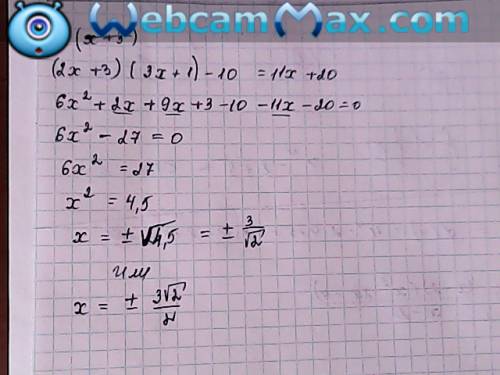 WebcamMax.com
(x+3)
(2x+3)(3x+1)-10 =11x+20
6x²+2x+9x+3-10-11x-20=0
6x²-27=0
6x²=27
x²=4,5
x=±√4,5 =±3/√2
или
x=±3√2/2